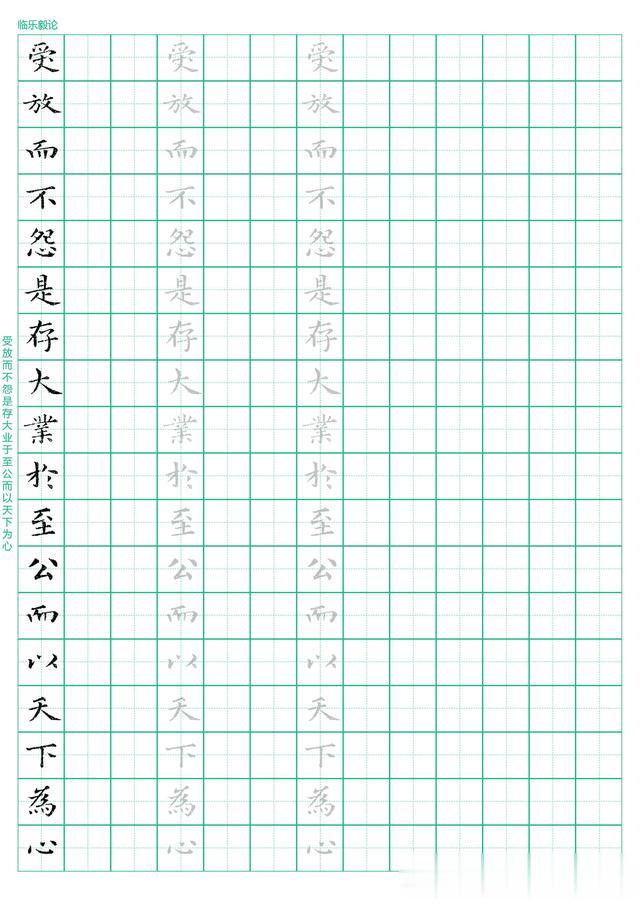 临乐毅论
受放而不怨是存大业于至公而以天下为心
受 受 受
放 放 放
而 而 而
不 不 不
怨 怨 怨
是 是 是
存 存 存
大 大 大
業 業 業
於 於 於
至 至 至
公 公 公
而 而 而
以 以 以
天 天 天
下 下 下
為 為 為
心 心 心